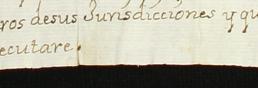 ros desus Jurisdicciones y qu
ecutare.